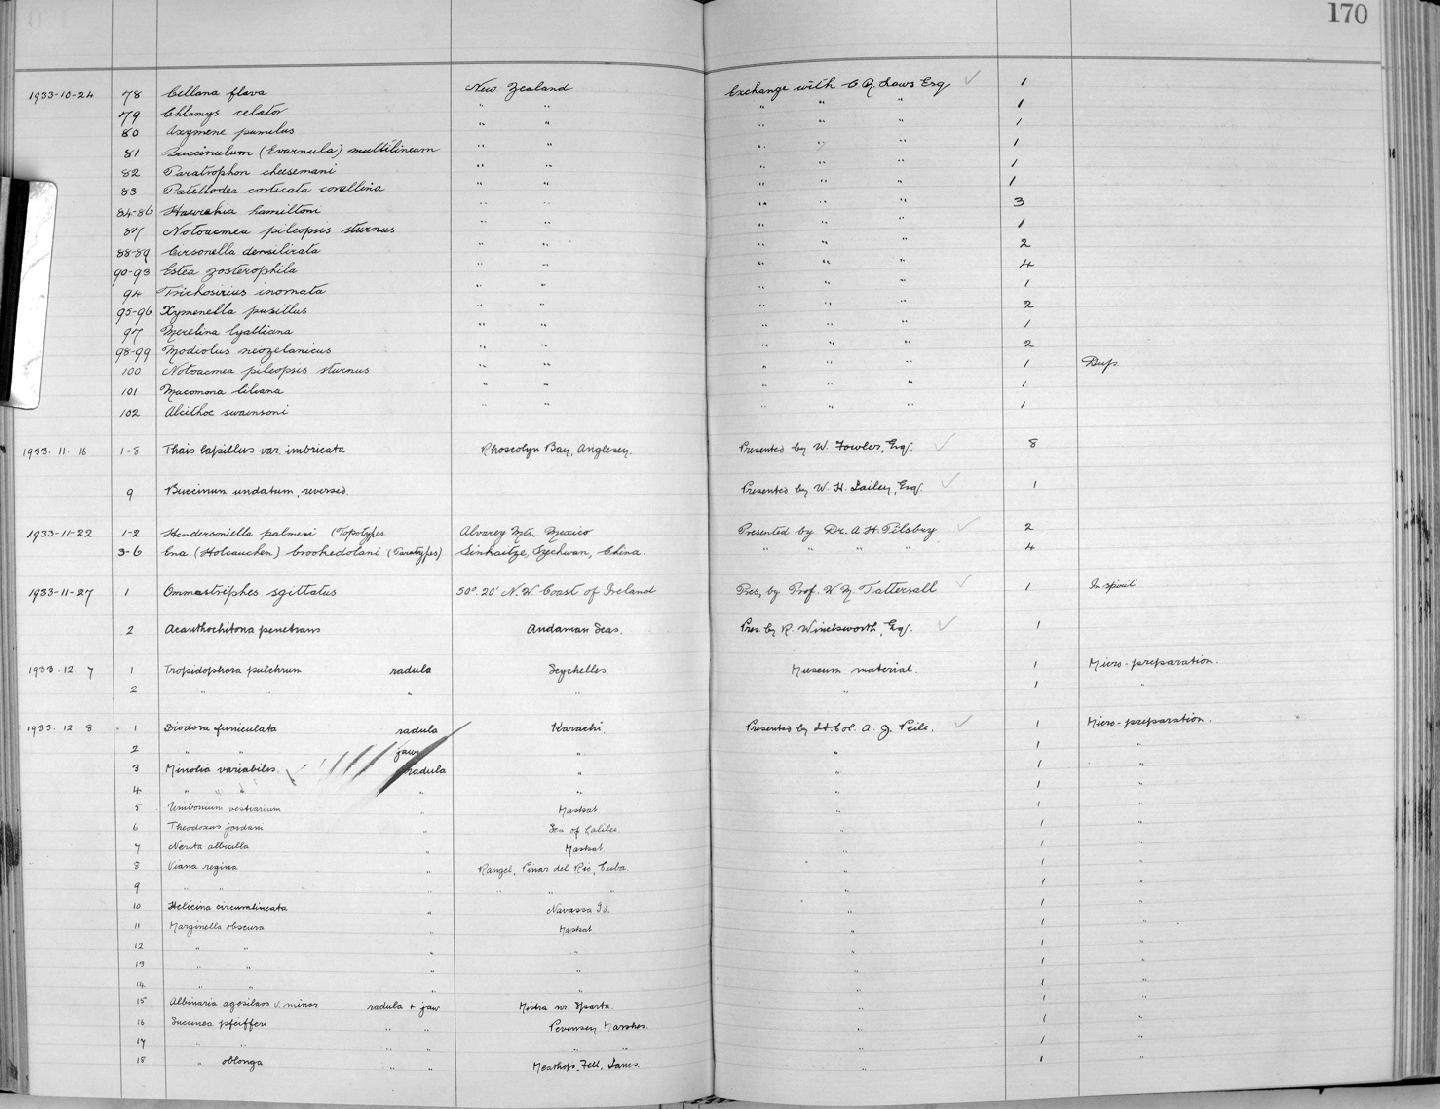 170
1933-10-24 78 Cellana flava New Zealand Exchange with C. R. Laws Esq ✓ 1
79 Chlamys celator " " " " " 1
80 Axymene pumilus " " " " " 1
81 Buccinulum (Evarnula) multilineum " " " " " 1
82 Paratrophon cheesemani " " " " " 1
83 Patelloidea corticata corallina " " " " " 1
84-86 Haurakia hamiltoni " " " " " 3
87 Notoacmea pileopsis sturnus " " " " " 1
88-89 Cirsonella densilirata " " " " " 2
90-93 Estea zosterophila " " " " " 4
94 Trichosirius inornata " " " " " 1
95-96 Xymenella pusillus " " " " " 2
97 Merelina lyalliana " " " " " 1
98-99 Modiolus neozelanicus " " " " " 2
100 Notoacmea pileopsis sturnus " " " " " 1 Dup.
101 Macomona liliana " " " " " 1
102 Alcithoe swainsoni " " " " " 1
1933. 11. 16 1-8 Thais lapillus var. imbricata Rhoscolyn Bay, Anglesey. Presented by W. Fowler, Esq. ✓ 8
9 Buccinum undatum, reversed. Presented by W. H. Lailey, Esq. ✓ 1
1933-11-22 1-2 Hendersoniella palmeri (Topotypes Alvarez Mts. Mexico Presented by Dr. A. H. Pilsbry ✓ 2
3-6 Ena (Holcauchen) brookedolani (Paratypes) Szechwan, China. " " " " 4
1933-11-27 1 Ommastrephes sgittatus 50°. 20' N. W. Coast of Ireland Pres. by Prof. W. M. Tattersall ✓ 1 In spirit
2 Acanthochitona penetrans Andaman Seas. Pres. by R. Winckworth, Esq. ✓ 1
1933. 12. 7 1 Tropidophora pulchrum radula Seychelles Museum material. 1 Micro-preparation.
2 " " " " " 1 "
1933. 12. 8 1 Diodora funiculata radula Karachi. Presented by Lt. Col. A. J. Peile. ✓ 1 Micro-preparation.
2 " " jaw " " 1 "
3 Minolia variabilis. radula " " 1 "
4 " " " " " 1 "
5 Umbonium vestiarium " Maskat. " 1 "
6 Theodoxus jordani " Sea of Galilee. " 1 "
7 Nerita albicilla " Maskat " 1 "
8 Viana regina " Rangel, Pinar del Rio, Cuba. " 1 "
9 " " " " " " " 1 "
10 Helicina circumlineata " Navassa Id. " 1 "
11 Marginella obscura " Maskat " 1 "
12 " " " " " 1 "
13 " " " " " 1 "
14 " " " " " 1 "
15 Albinaria agesilaos v. minor radula + jaw Mistra nr Sparta. " 1 "
16 Succinea pfeifferi " " Pevensey Marshes. " 1 "
17 " " " " " " " 1 "
18 " oblonga " " Meathop Fell, Lancs. " 1 "